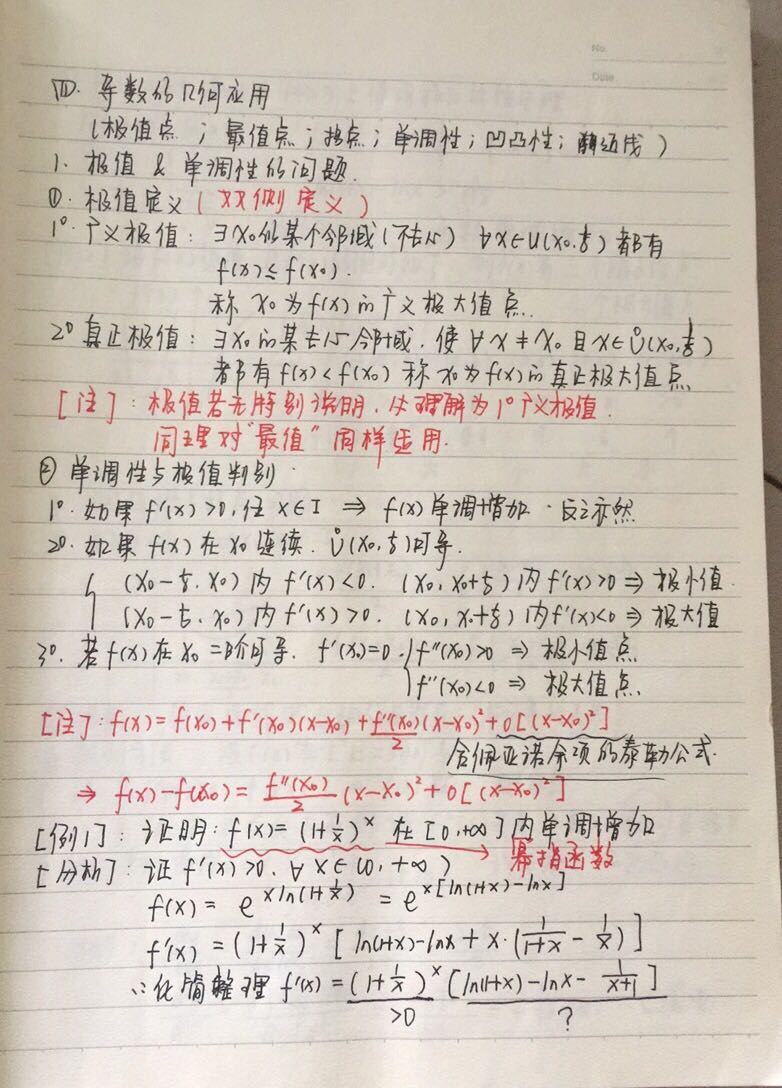 No.
Date
四. 导数的几何应用
(极值点 ; 最值点 ; 拐点 ; 单调性 ; 凹凸性 ; 渐近线 )
1. 极值 & 单调性的问题.
①. 极值定义 ( 双侧定义 )
1°. 广义极值 : ∃ x₀的某个邻域 (不去心) ∀x∈U(x₀,δ) 都有
f(x) ≤ f(x₀).
称 x₀ 为 f(x) 的广义极大值点.
2° 真正极值 : ∃ x₀ 的某去心邻域, 使 ∀ x ≠ x₀ 且 x∈Ů(x₀,δ)
都有 f(x) < f(x₀) 称 x₀为 f(x) 的真正极大值点
[注] : 极值若无特别说明, 均理解为 1° 广义极值.
同理对"最值" 同样适用.
② 单调性与极值判别.
1°. 如果 f'(x) >0, 任 x∈I ⇒ f(x) 单调增加. 反之亦然
2°. 如果 f(x) 在 x₀ 连续. Ů(x₀,δ)可导.
{ (x₀-δ, x₀) 内 f'(x) <0. (x₀, x₀+δ) 内 f'(x) >0 ⇒ 极小值.
(x₀-δ, x₀) 内 f'(x) >0. (x₀, x₀+δ) 内 f'(x)<0 ⇒ 极大值
3°. 若 f(x) 在 x₀ 二阶可导. f'(x₀)=0. { f''(x₀) >0 ⇒ 极小值点
f''(x₀) <0 ⇒ 极大值点.
[注] : f(x) = f(x₀) + f'(x₀)(x-x₀) + f''(x₀)/2 (x-x₀)² + o[(x-x₀)²]
含佩亚诺余项的泰勒公式.
⇒ f(x) - f(x₀) = f''(x₀)/2 (x-x₀)² + o[(x-x₀)²]
[例1] : 证明: f(x) = (1+1/x)^x 在 [0,+∞] 内单调增加
[分析] : 证 f'(x) >0. ∀ x∈(0, +∞) → 幂指函数
f(x) = e^{xln(1+1/x)} = e^{x[ln(1+x)-lnx]}
f'(x) = (1+1/x)^x [ ln(1+x)-lnx + x·(1/(1+x) - 1/x) ]
∴化简整理 f'(x) = (1+1/x)^x [ln(1+x)-lnx- 1/(x+1)]
>0 ?